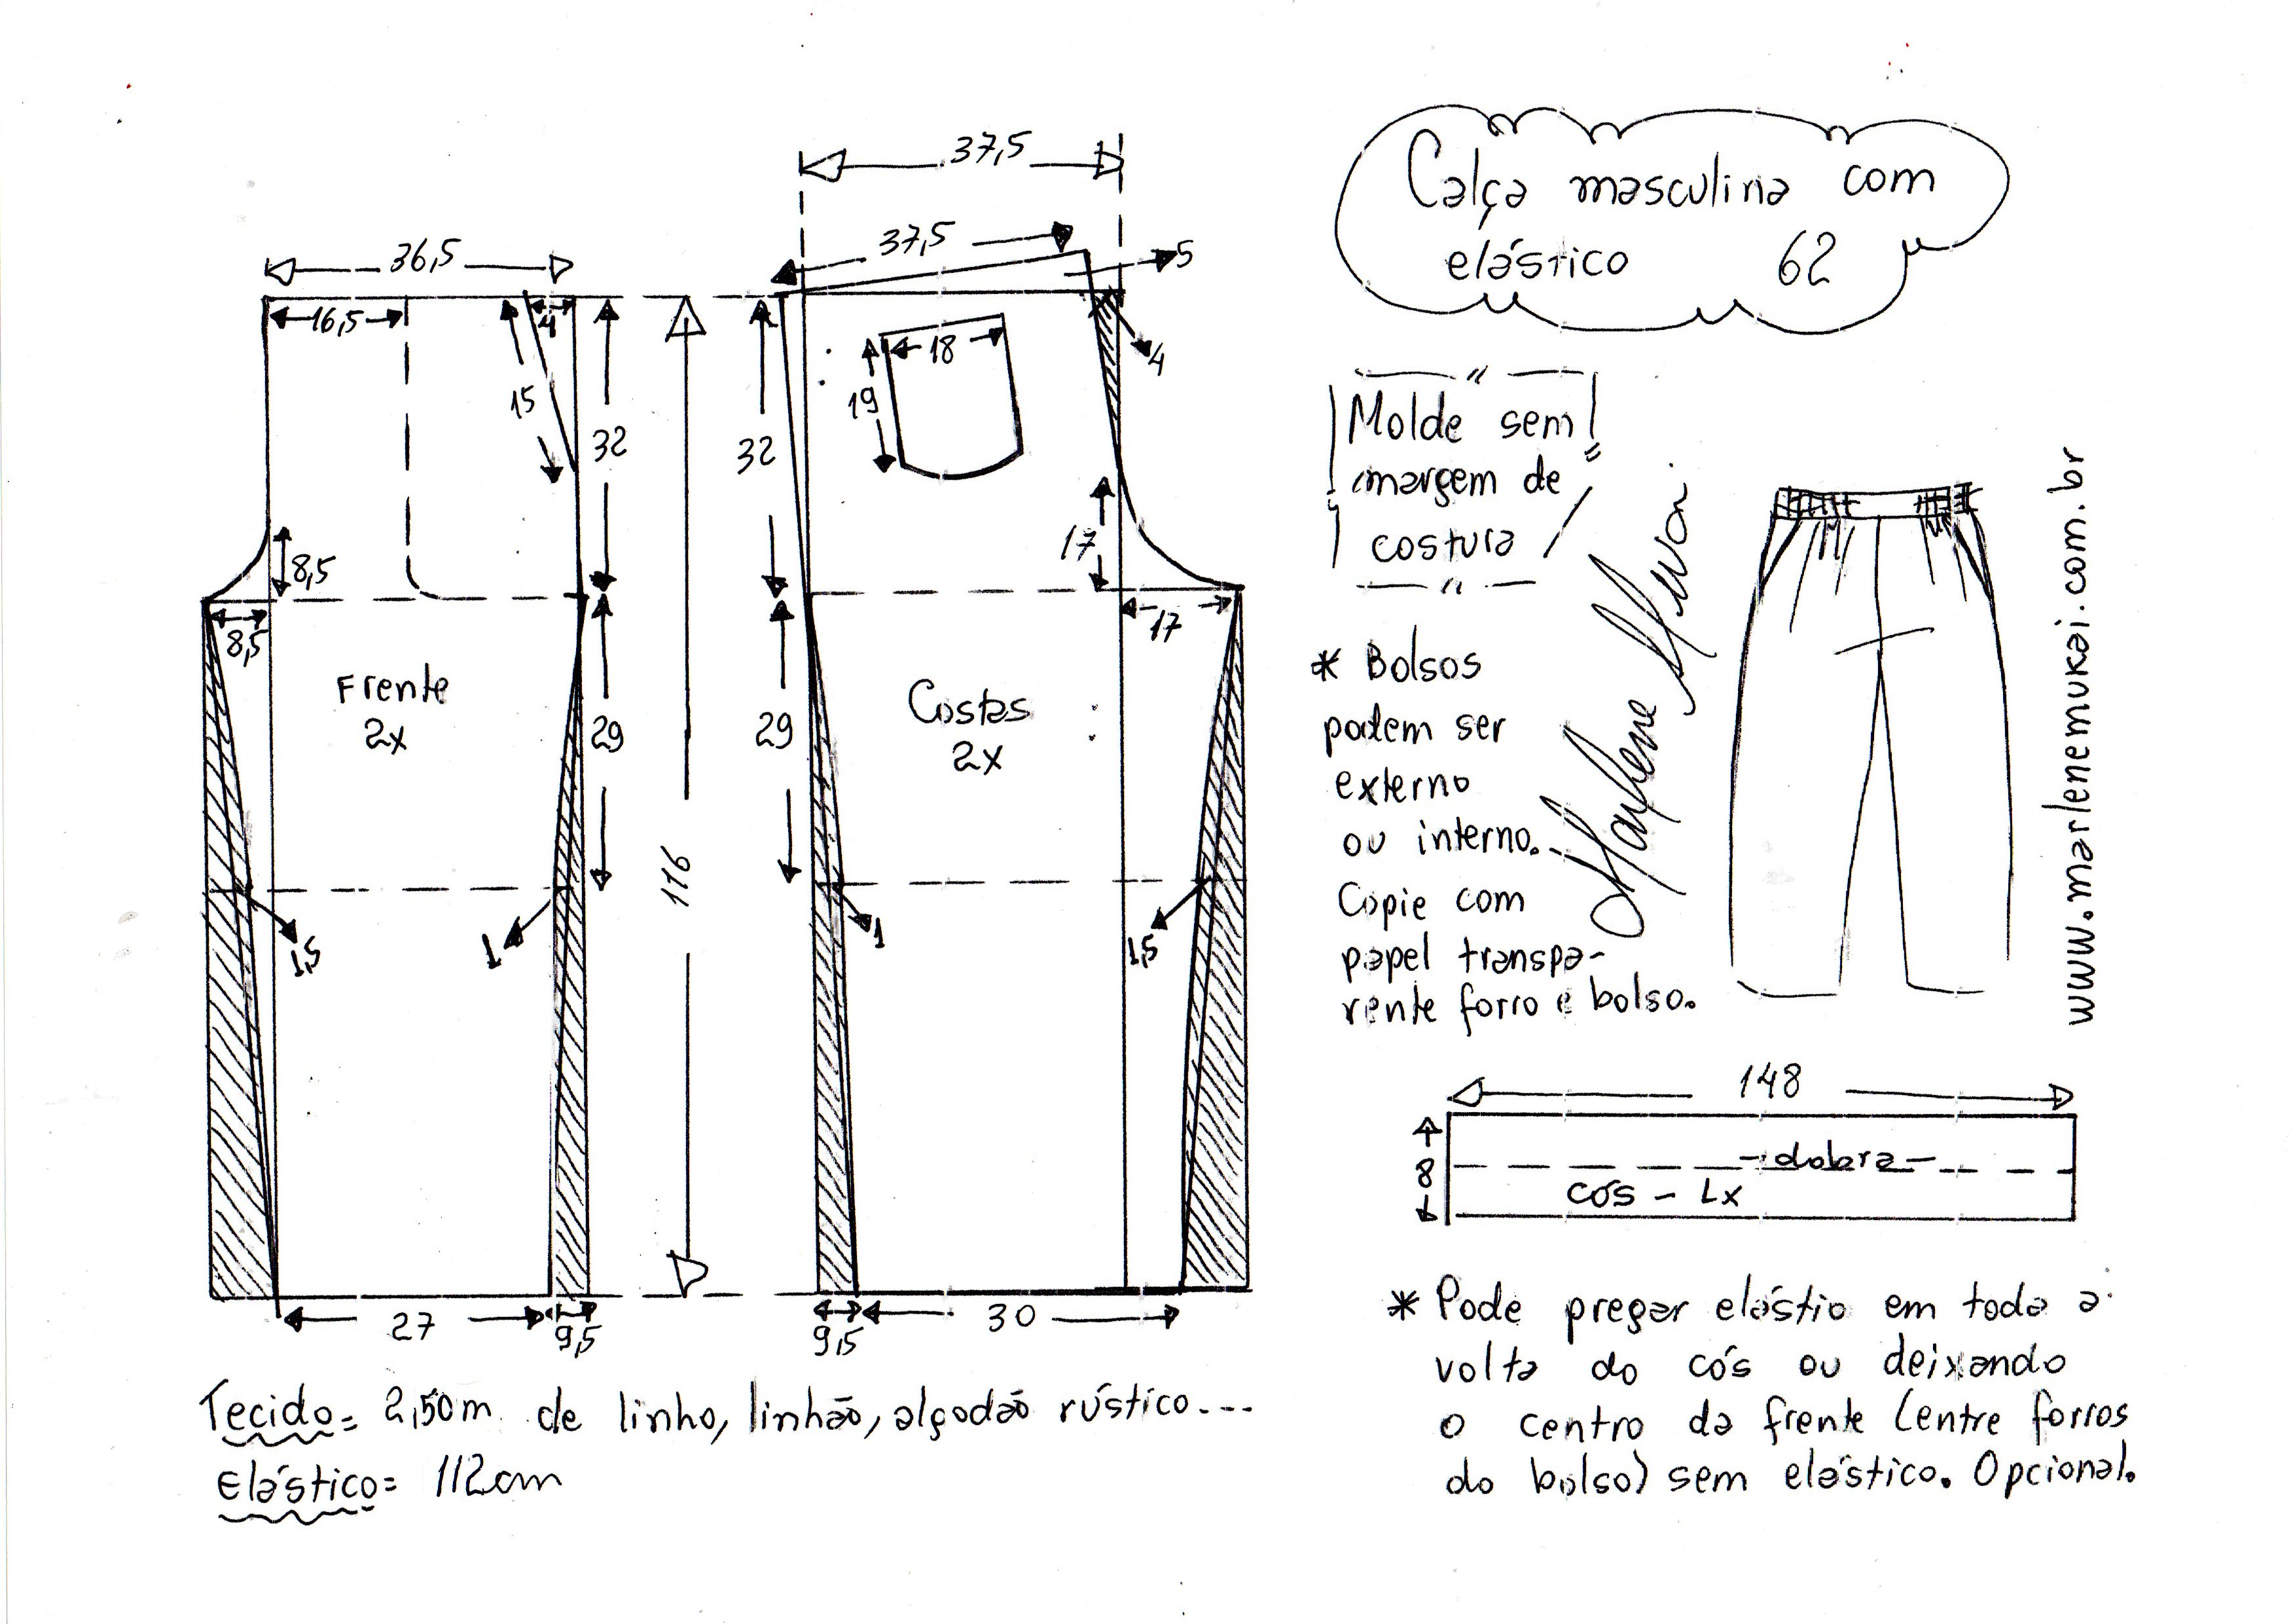 Calça masculina com
elástico 62
37,5
37,5
5
36,5
16,5
4
15
32
32
18
19
4
8,5
8,5
17
17
Frente
2x
Costas
2x
29
29
116
1,5
1
1
1,5
27
9,5
9,5
30
Tecido= 2,50m de linho, linhão, algodão rústico...
Elástico= 112cm
Molde sem
margem de
costura
* Bolsos
podem ser
externo
ou interno.
Copie com
papel transpa-
rente forro e bolso.
www.marlenemukai.com.br
148
8
-dobra-
cós - 1x
* Pode pregar elástio em toda a
volta do cós ou deixando
o centro da frente (entre forros
do bolso) sem elástico. Opcional.